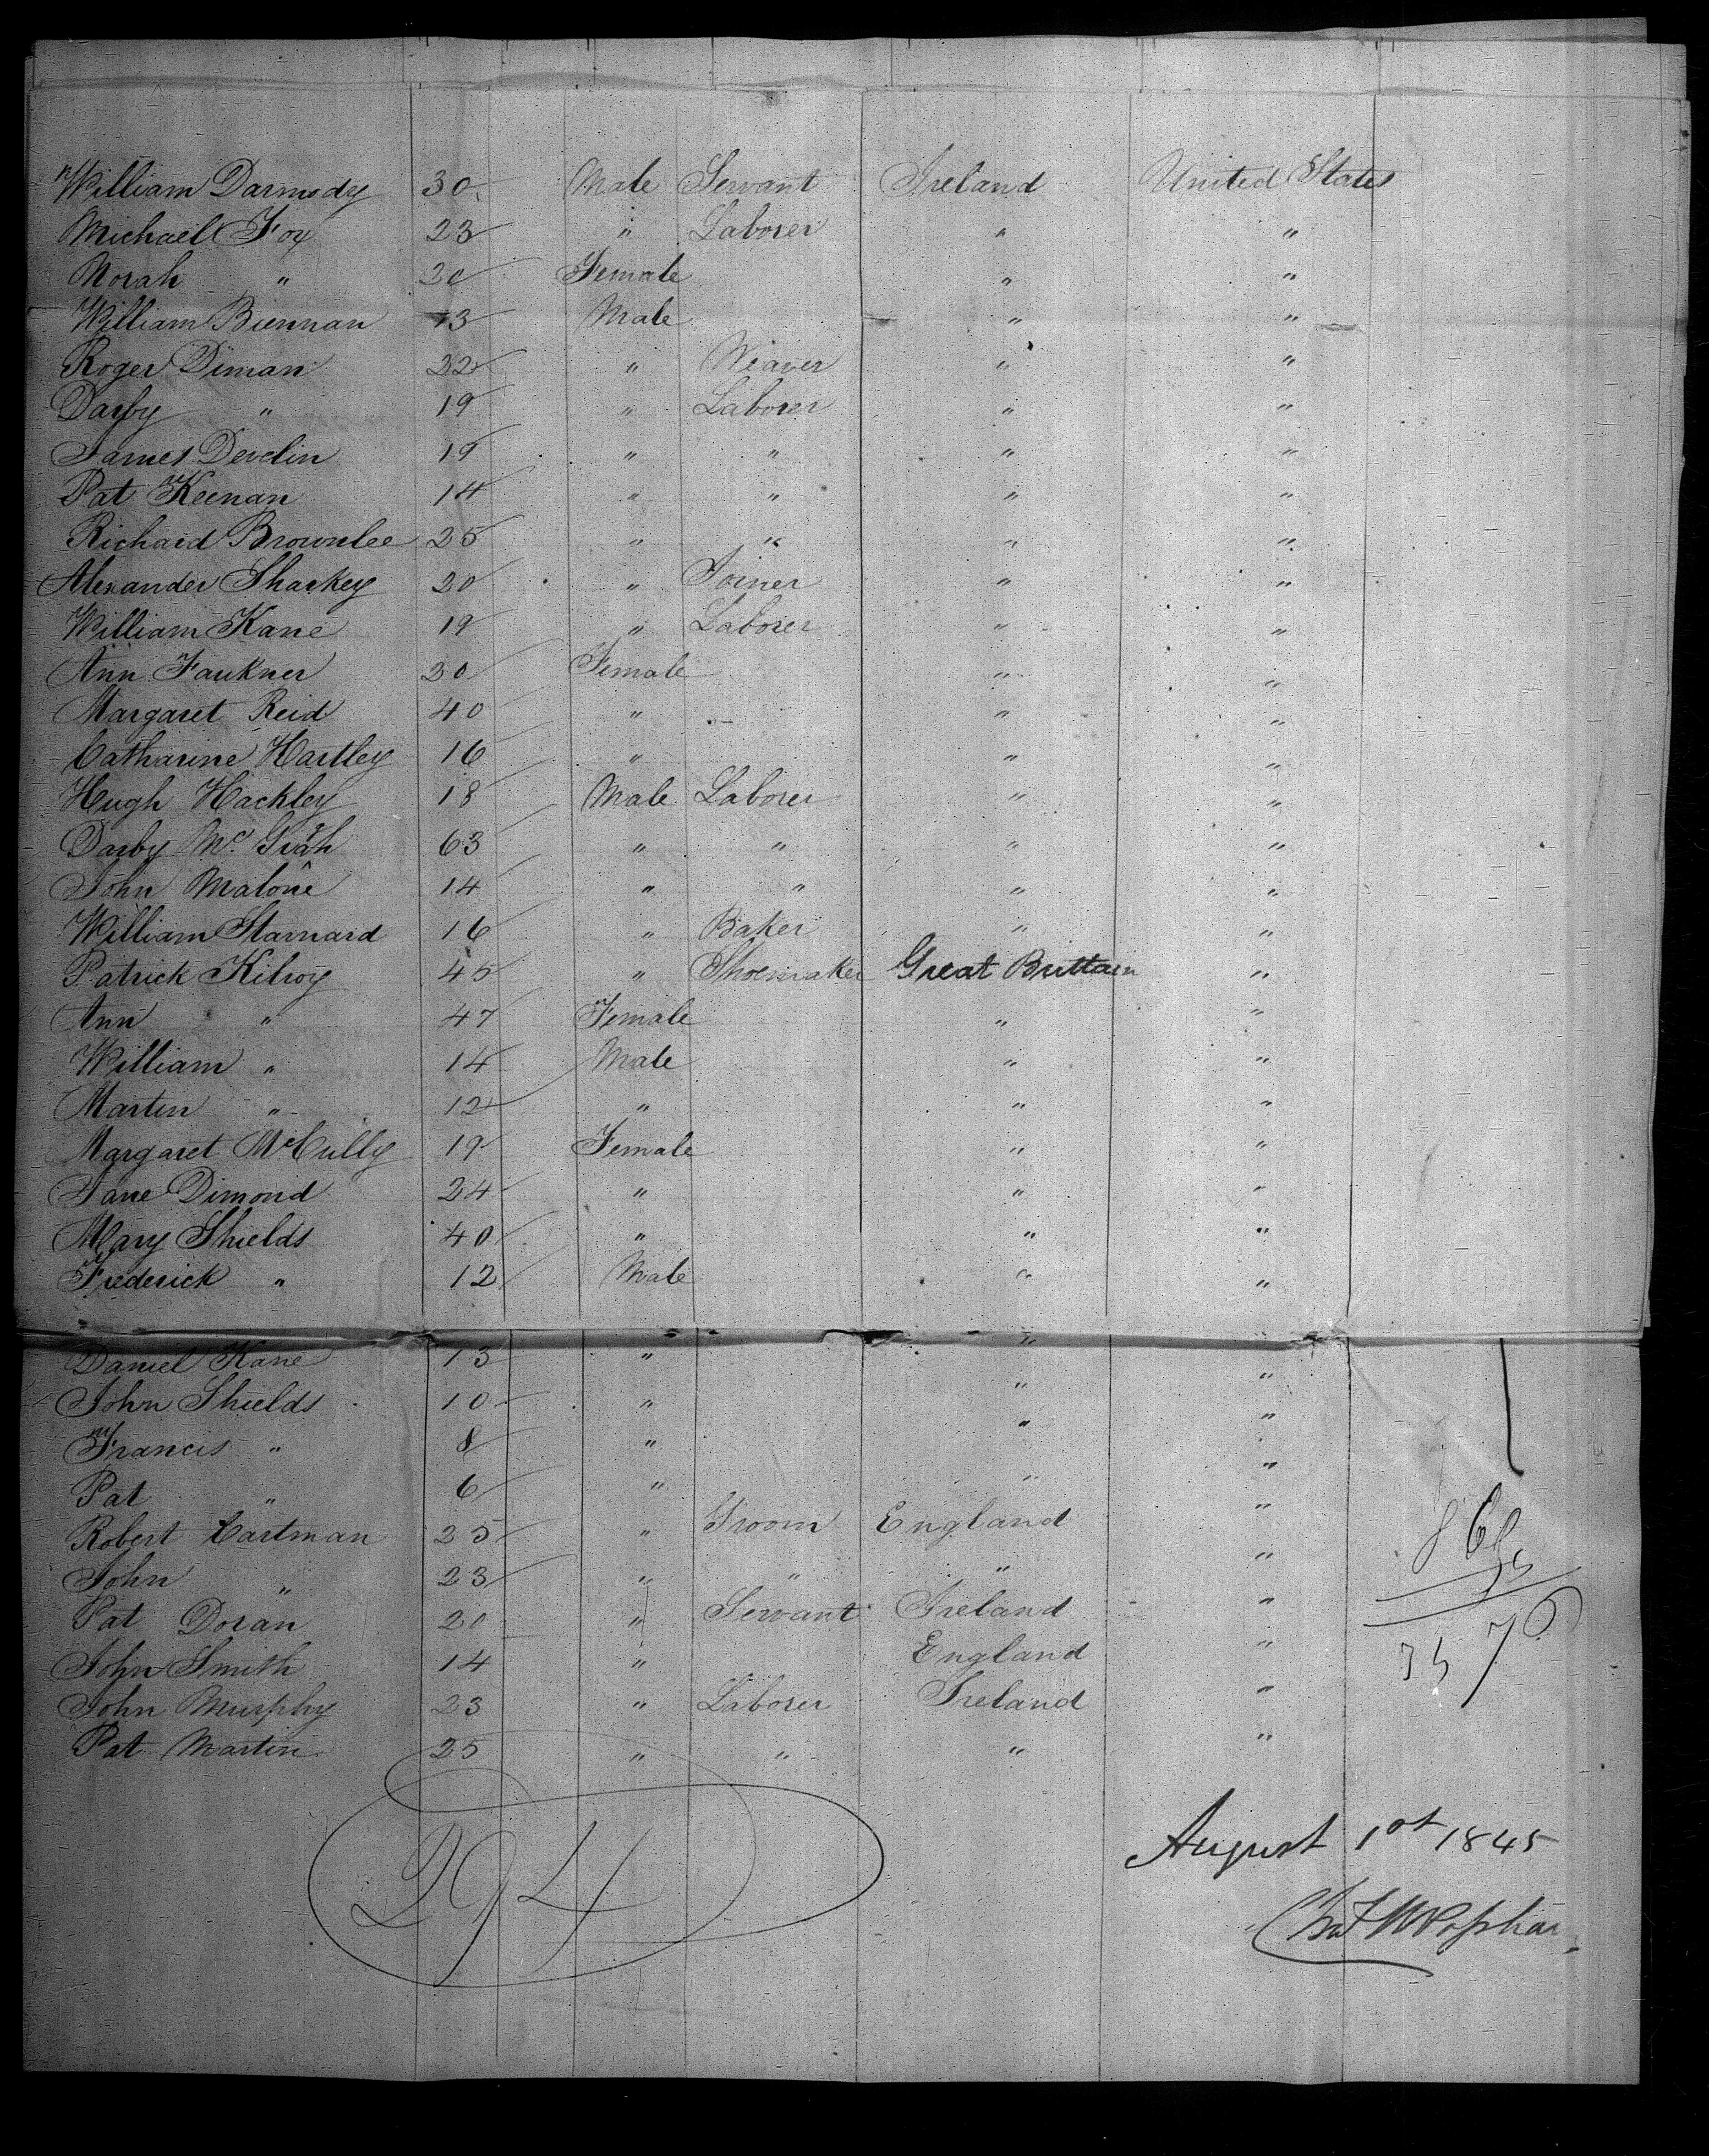 William Darmody 30 Male Servant Ireland United States
Michael Foy 23 " Laborer " "
Norah " 20 Female " "
William Brennan 13 Male " "
Roger Diman 22 " Weaver " "
Darby " 19 " Laborer " "
James Develin 19 " " " "
Pat Keenan 14 " " " "
Richard Brownlee 25 " " " "
Alexander Sharkey 20 " Joiner " "
William Kane 19 " Laborer " "
Ann Faukner 30 Female " "
Margaret Reid 40 " " "
Catharine Hartley 16 " " "
Hugh Hackley 18 Male Laborer " "
Darby Mc. Grath 63 " " " "
John Malone 14 " " " "
William Starnard 16 " Baker " "
Patrick Kilroy 45 " Shoemaker Great Brittain "
Ann " 47 Female " "
William " 14 Male " "
Martin " 12 " " "
Margaret McCully 19 Female " "
Jane Dimond 24 " " "
Mary Shields 40 " " "
Frederick " 12 Male " "
Daniel Kane 13 " " "
John Shields 10 " " "
Francis " 8 " " "
Pat " 6 " " "
Robert Cartman 25 " Groom England "
John " 23 " " " "
Pat Doran 20 " Servant Ireland "
John Smith 14 " England "
John Murphy 23 " Laborer Ireland "
Pat Martin 25 " " " "
294
August 1st 1845